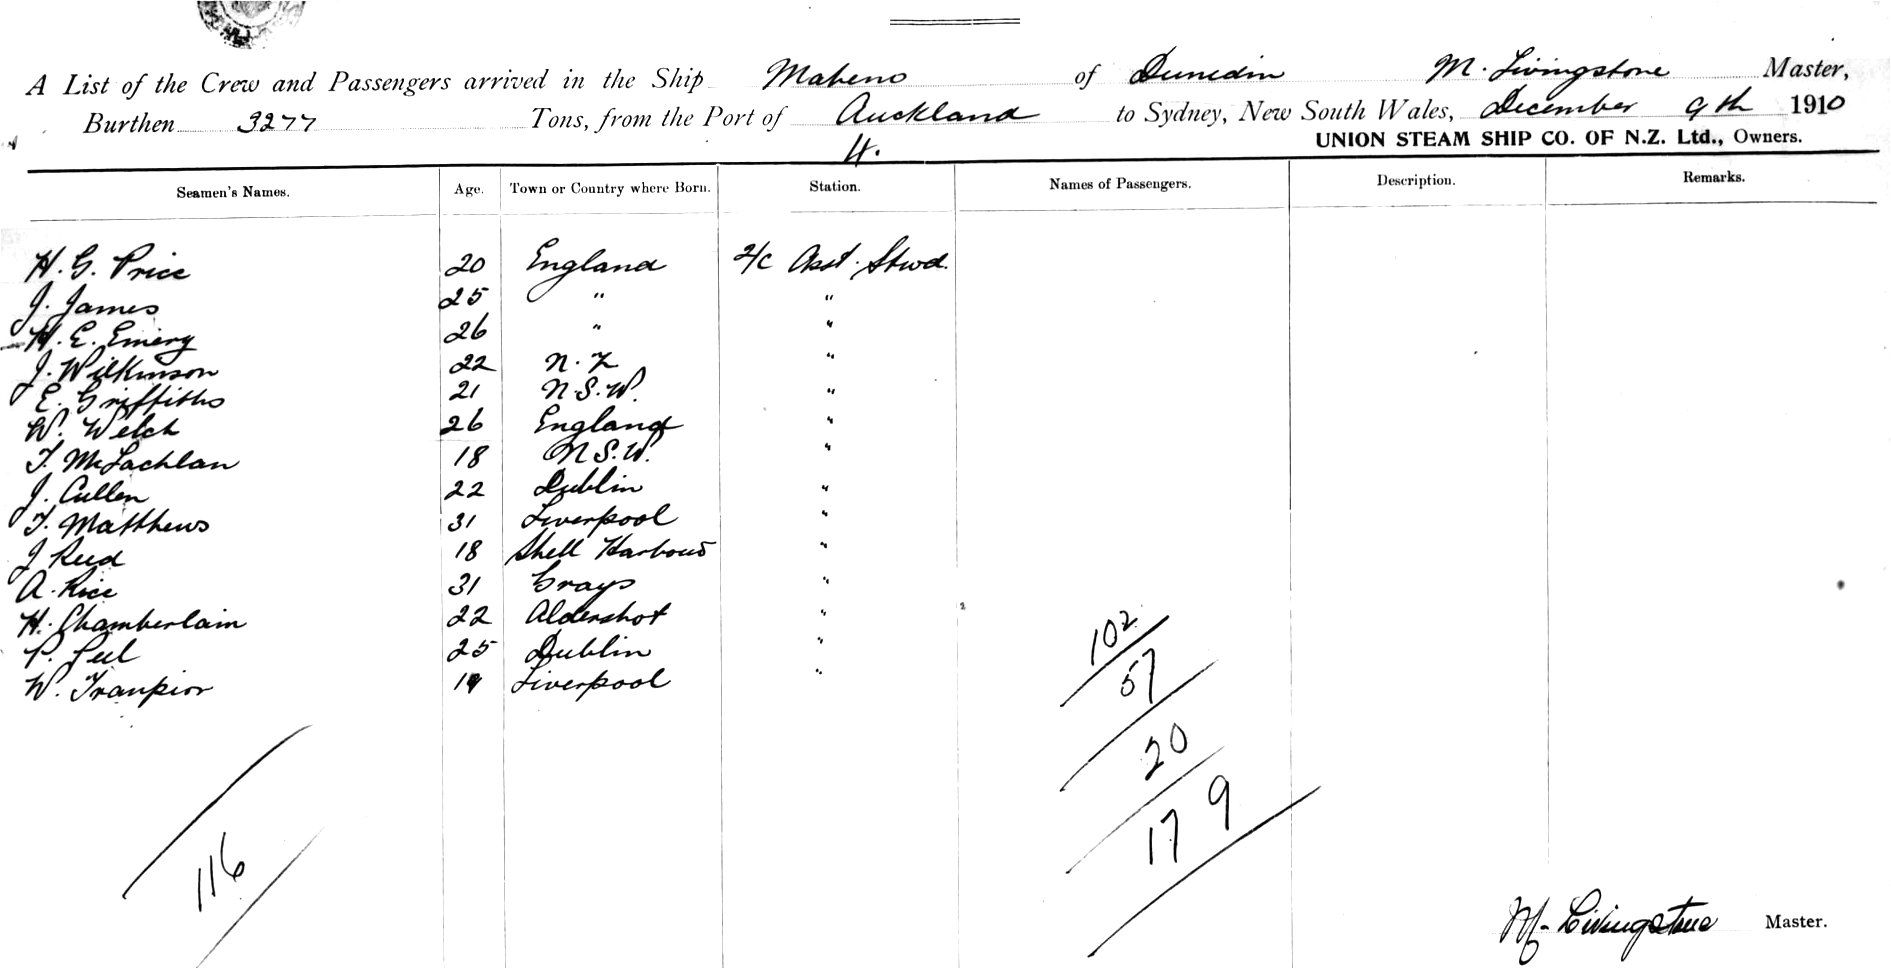 A List of the Crew and Passengers arrived in the Ship Maheno of Dunedin M. Livingstone Master,
Burthen 3277 Tons, from the Port of Auckland to Sydney, New South Wales, December 9th 1910
UNION STEAM SHIP CO. OF N.Z. Ltd., Owners.
4.
Seamen's Names. Age. Town or Country where Born. Station. Names of Passengers. Description. Remarks.
H. G. Price 20 England 2/c Asst. Stwd.
J. James 25 " "
H. E. Emery 26 " "
J. Wilkinson 22 N. Z "
E. Griffiths 21 N.S.W. "
W. Welch 26 England "
T. McLachlan 18 N S.W. "
J. Cullen 22 Dublin "
T. Matthews 31 Liverpool "
J Reed 18 Shell Harbour "
A. Rice 31 Grays "
H. Chamberlain 22 Aldershot "
P. 25 Dublin "
W. Liverpool "
102
57
20
179
116
M. Livingstone Master.